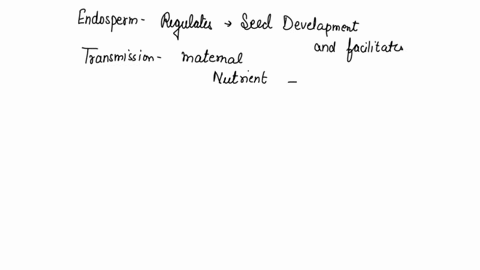 Endosperm- Regulates → Seed Development
and facilitates
Transmission- maternal
Nutrient –